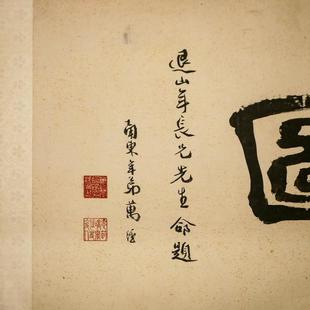 圖
退山年長兄先生命題
甬東年弟萬經